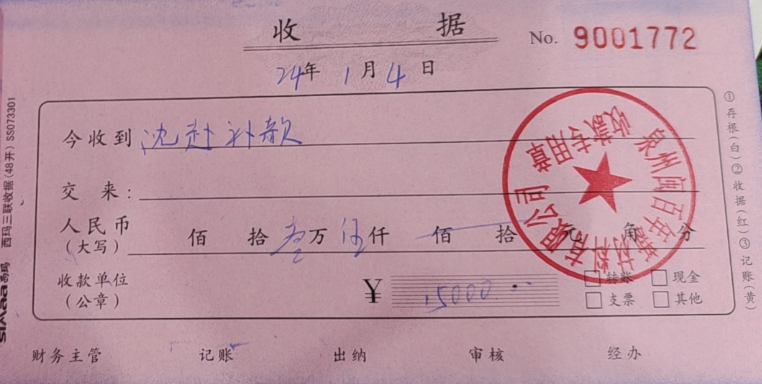 收 据
No. 9001772
24年 1月 4日
今收到 沈赴补款
交 来:
人民币(大写) 佰 拾 壹万 伍仟 佰 拾 元 角 分
收款单位(公章) ¥ 15000
转账 现金
支票 其他
财务主管 记账 出纳 审核 经办
①存根(白)②收据(红)③记账(黄)
西玛三联收据(48开) SS073301
SIMAA西玛
泉州闽百年 材料有限公司
收款专用章